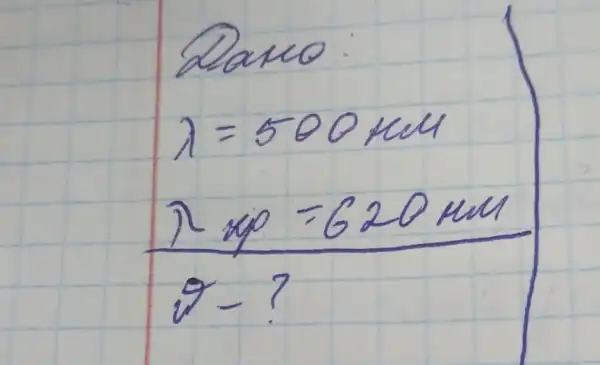 Дано:
λ = 500 нм
λ кр = 620 нм
𝜗 - ?